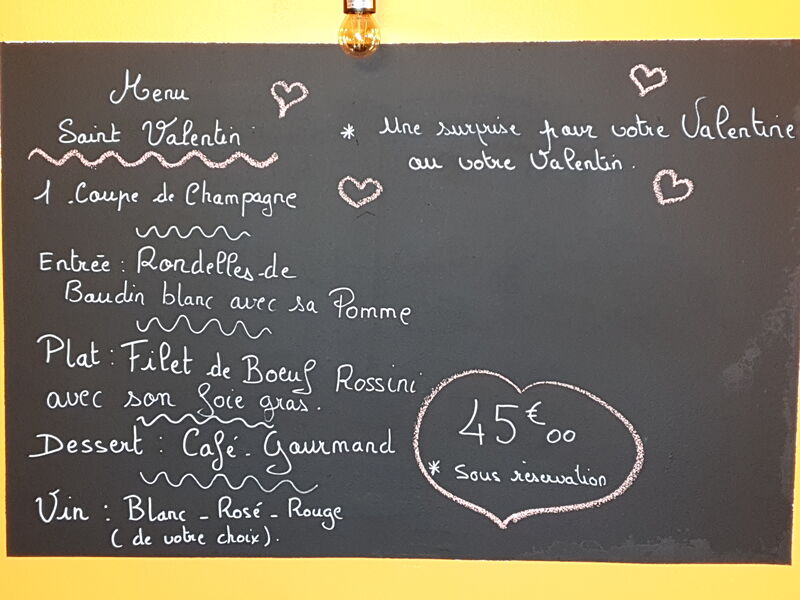 Menu
Saint Valentin
1 Coupe de Champagne
Entrée : Rondelles de
Boudin blanc avec sa Pomme
Plat : Filet de Boeuf Rossini
avec son foie gras.
Dessert : Café - Gourmand
Vin : Blanc - Rosé - Rouge
( de votre choix).
* Une surprise pour votre Valentine
ou votre Valentin.
45€00
* Sous réservation